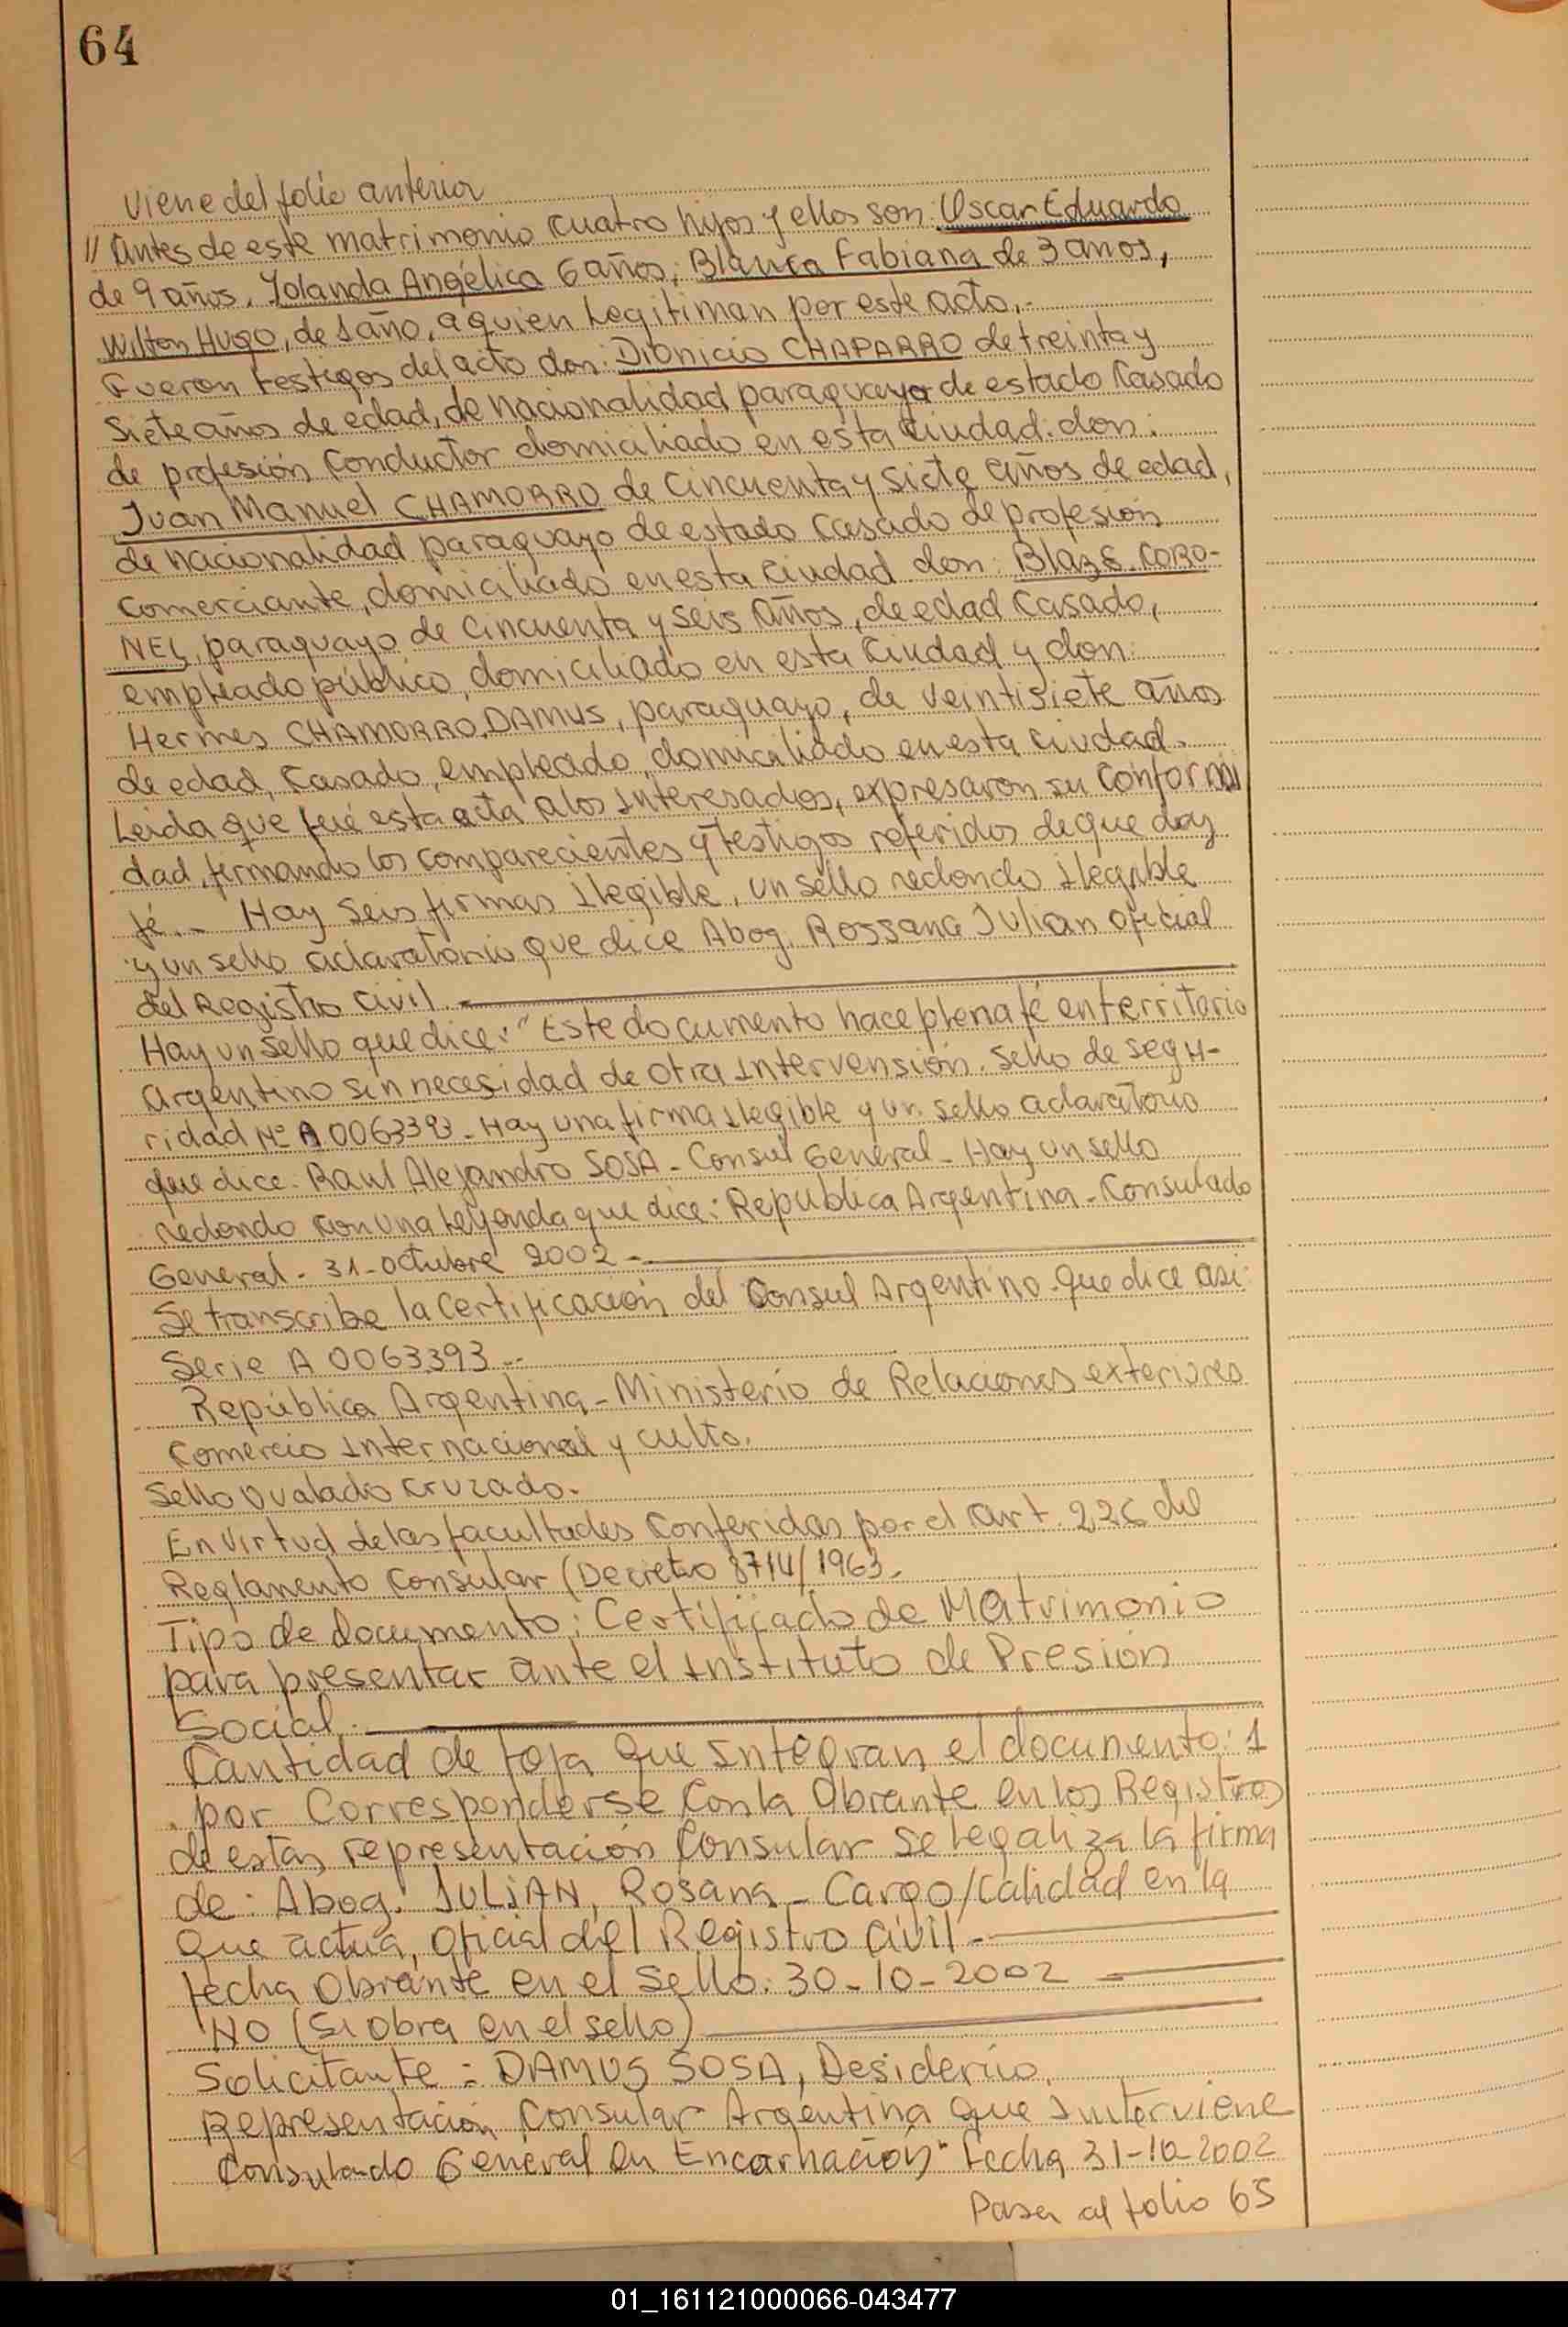 64
Viene del folio anterior
// Antes de este matrimonio cuatro hijos y ellos son: Oscar Eduardo
de 9 años, Yolanda Angélica 6 años; Blanca Fabiana de 3 anos,
Wilton Hugo, de 1 año, a quien Legitiman por este acto.-
Fueron testigos del acto don: Dionicio CHAPARRO de treinta y
Siete años de edad, de nacionalidad paraguaya de estado Casado
de profesión Conductor domiciliado en esta Ciudad. don:
Juan Manuel CHAMORRO de Cincuenta y siete años de edad,
de nacionalidad paraguayo de estado Casado de profesión
Comerciante, domiciliado en esta Ciudad don: Blaz E. CORO-
NEL, paraguayo de Cincuenta y seis Años, de edad Casado,
empleado público, domiciliado en esta Ciudad y don:
Hermes CHAMORRO, DAMUS, paraguayo, de Veintisiete años
de edad, Casado, empleado, domiciliado en esta Ciudad.
Leida que fué esta acta a los Interesados, expresaron su Conformi
dad, firmando los comparecientes y testigos referidos de que doy
fé.- Hay seis firmas Ilegible, un sello redondo Ilegible
y un sello aclaratorio que dice Abog. Rossana Julian oficial
del Registro Civil.
Hay un sello que dice: "Este documento hace plena fé en territorio
Argentino sin necesidad de otra Intervensión. Sello de segu-
ridad Nº A 0063393 - Hay una firma Ilegible y un sello aclaratorio
que dice: Raul Alejandro SOSA - Consul General - Hay un sello
redondo con una Leyenda que dice: Republica Argentina - Consulado
General - 31 - octubre 2002 -
Se transcribe la Certificación del Consul Argentino - que dice asi:
Serie A 0063393 --
República Argentina - Ministerio de Relaciones exteriores
Comercio Internacional y culto.
Sello ovalado cruzado.
En Virtud de las facultades Conferidas por el art. 226 del
Reglamento Consular (Decreto 8714/1963.
Tipo de documento: Certificado de Matrimonio
para presentar ante el Instituto de Presión
Social.
Cantidad de foja que Integran el documento: 1
por Corresponderse Con la Obrante en los Registros
de estas representación Consular se legaliza la firma
de: Abog. JULIAN, Rosana - Cargo/Calidad en la
Que actua, oficial del Registro Civil -
fecha Obrante en el Sello: 30-10-2002
NO (Si obra en el sello)
Solicitante: DAMUS SOSA, Desiderio.
Representación Consular Argentina que Interviene
Consulado General en Encarnación - fecha 31-10-2002
Pasa al folio 65
01_161121000066-043477